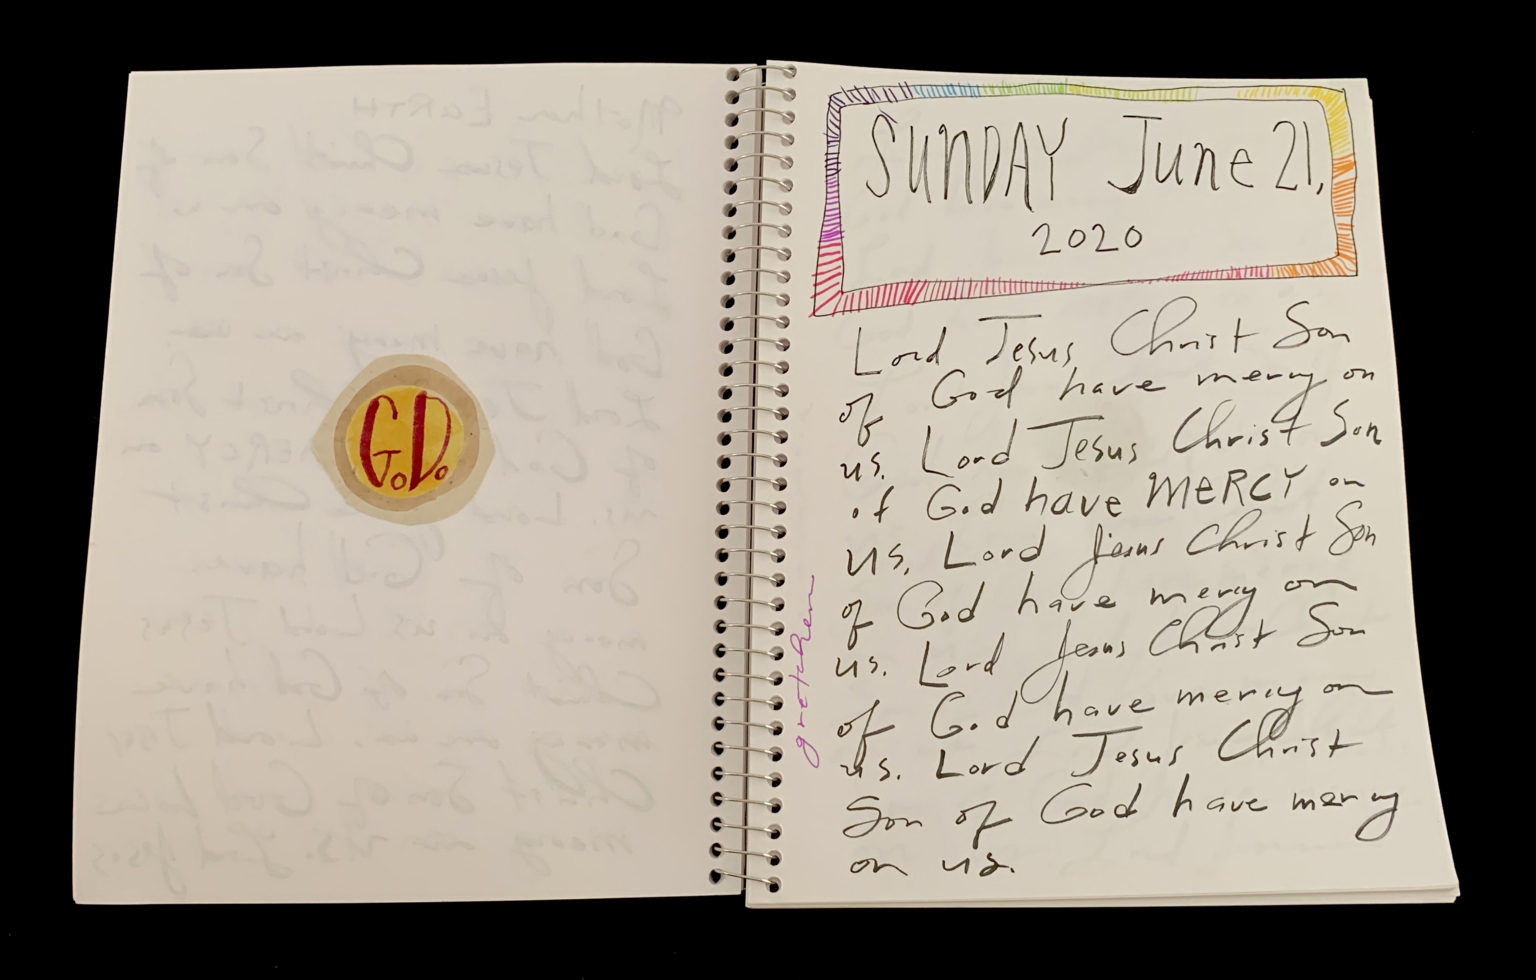 G.D.
To
SUNDAY June 21,
2020
Lord Jesus Christ Son
of God have mercy on
us. Lord Jesus Christ Son
of God have MERCY on
us. Lord Jesus Christ Son
of God have mercy on
us. Lord Jesus Christ Son
of God have mercy on
us. Lord Jesus Christ
Son of God have mercy
on us.
gretchen